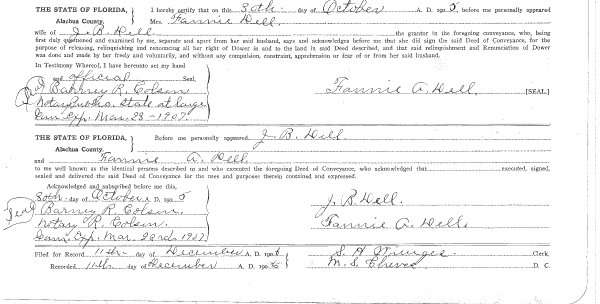 THE STATE OF FLORIDA, I hereby certify that on this 30th day of October A. D. 1905, before me personally appeared
Alachua County. Mrs. Fannie Dell.
wife of J. B. Dell the grantor in the foregoing conveyance, who, being
first duly questioned and examined by me, separate and apart from her said husband, says and acknowledges before me that she did sign the said Deed of Conveyance, for the
purpose of releasing, relinquishing and renouncing all her right of Dower in and to the land in said Deed described, and that said relinquishment and Renunciation of Dower
was done and made by her freely and voluntarily, and without any compulsion, constraint, apprehension or fear of or from her said husband.
In Testimony Whereof, I have hereunto set my hand
and official Seal,
Barney R. Colson
Notary Public State at large
Com. Exp. Mar. 23-1907.
Fannie A. Dell. [SEAL]
THE STATE OF FLORIDA, Before me personally appeared J. B. Dell.
Alachua County.
and Fannie A. Dell
to me well known as the identical persons described in and who executed the foregoing Deed of Conveyance, who acknowledged that executed, signed,
sealed and delivered the said Deed of Conveyance for the uses and purposes therein contained and expressed.
Acknowledged and subscribed before me this,
30th day of October A. D. 1905
Barney R. Colson.
Notary R. Colson.
Com. Exp. Mar. 23rd 1907
J. B. Dell.
Fannie A. Dell.
Filed for Record 11th day of December A. D. 1906
Recorded 11th day of December A. D. 1906
S. H. Clerk.
M. S. Cheves D. C.